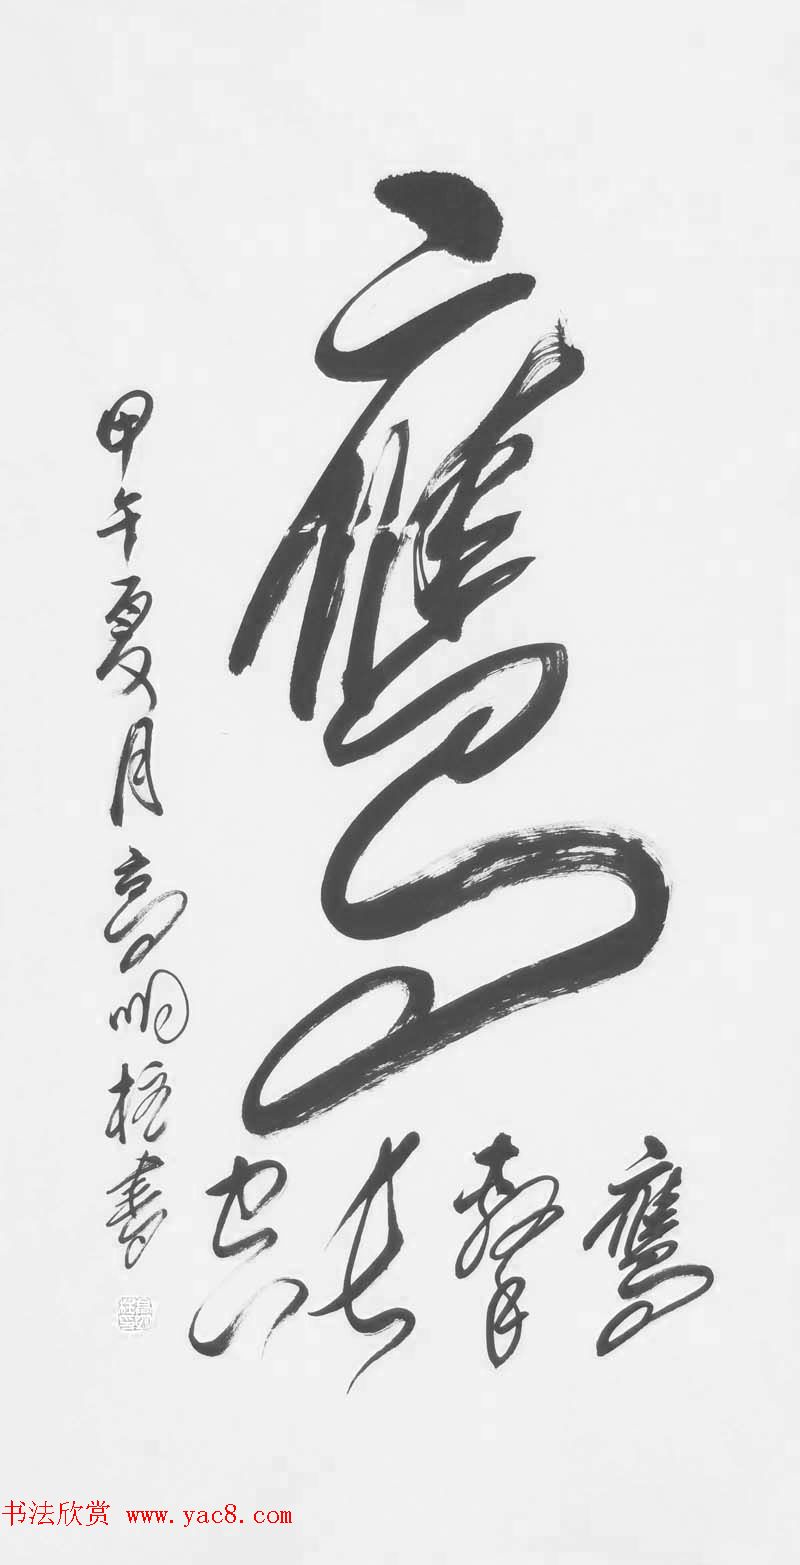 鷹
鷹擊长空
甲午夏月高明柱書
书法欣赏 www.yac8.com